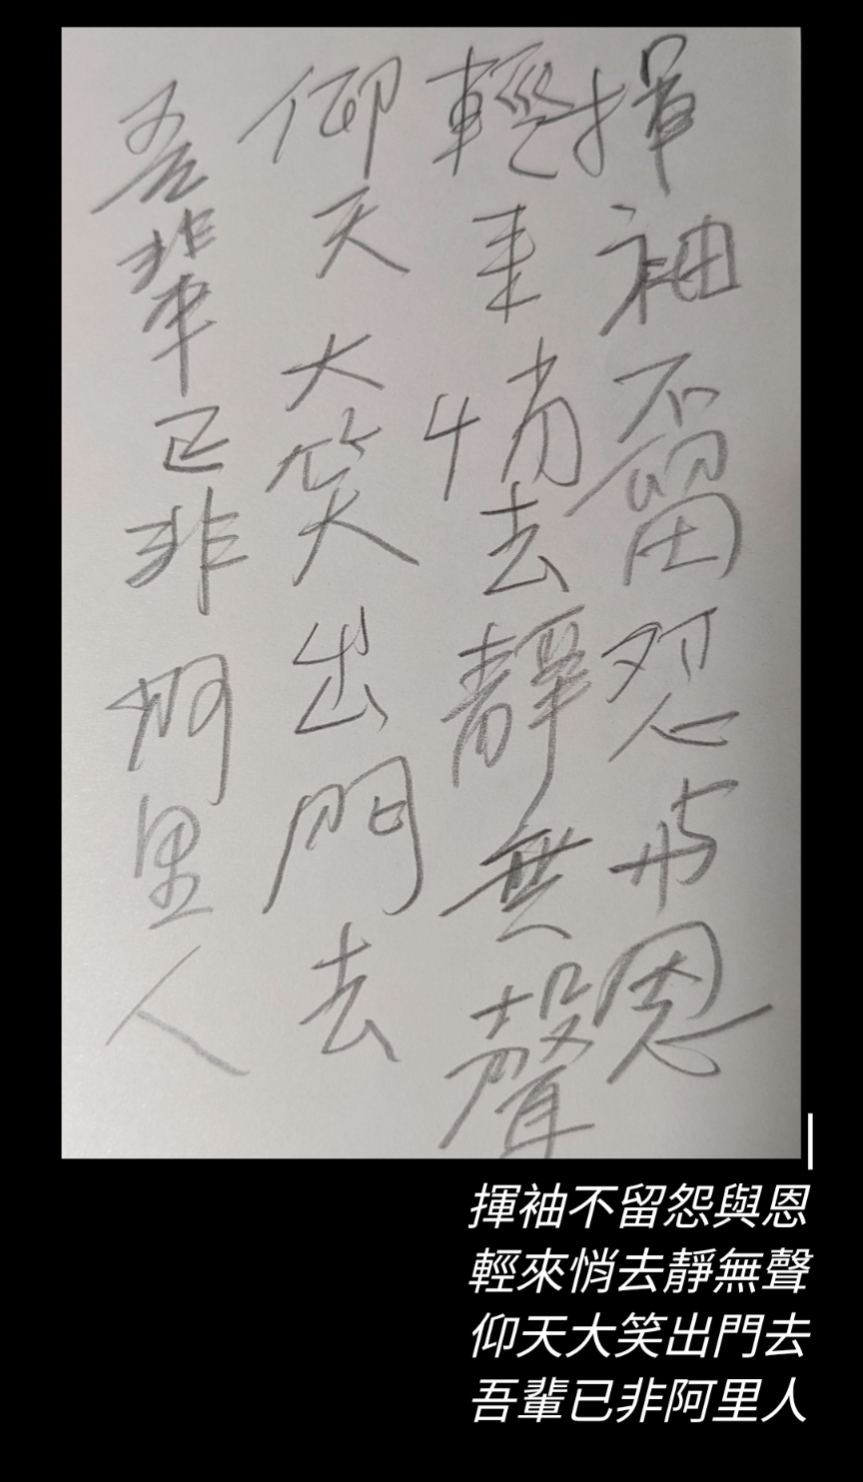 揮袖不留怨与恩
輕来悄去靜無聲
仰天大笑出門去
吾輩已非阿里人
揮袖不留怨與恩
輕來悄去靜無聲
仰天大笑出門去
吾輩已非阿里人